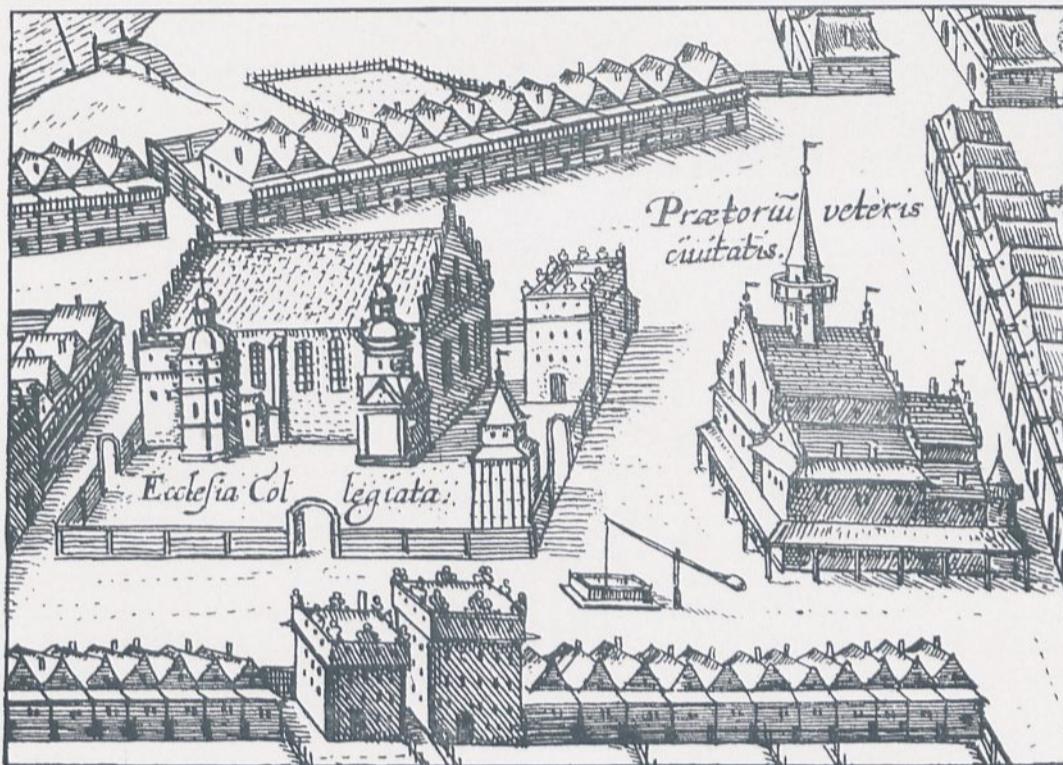 Prætoriũ veteris
ciuitatis.
Ecclesia Collegiata: